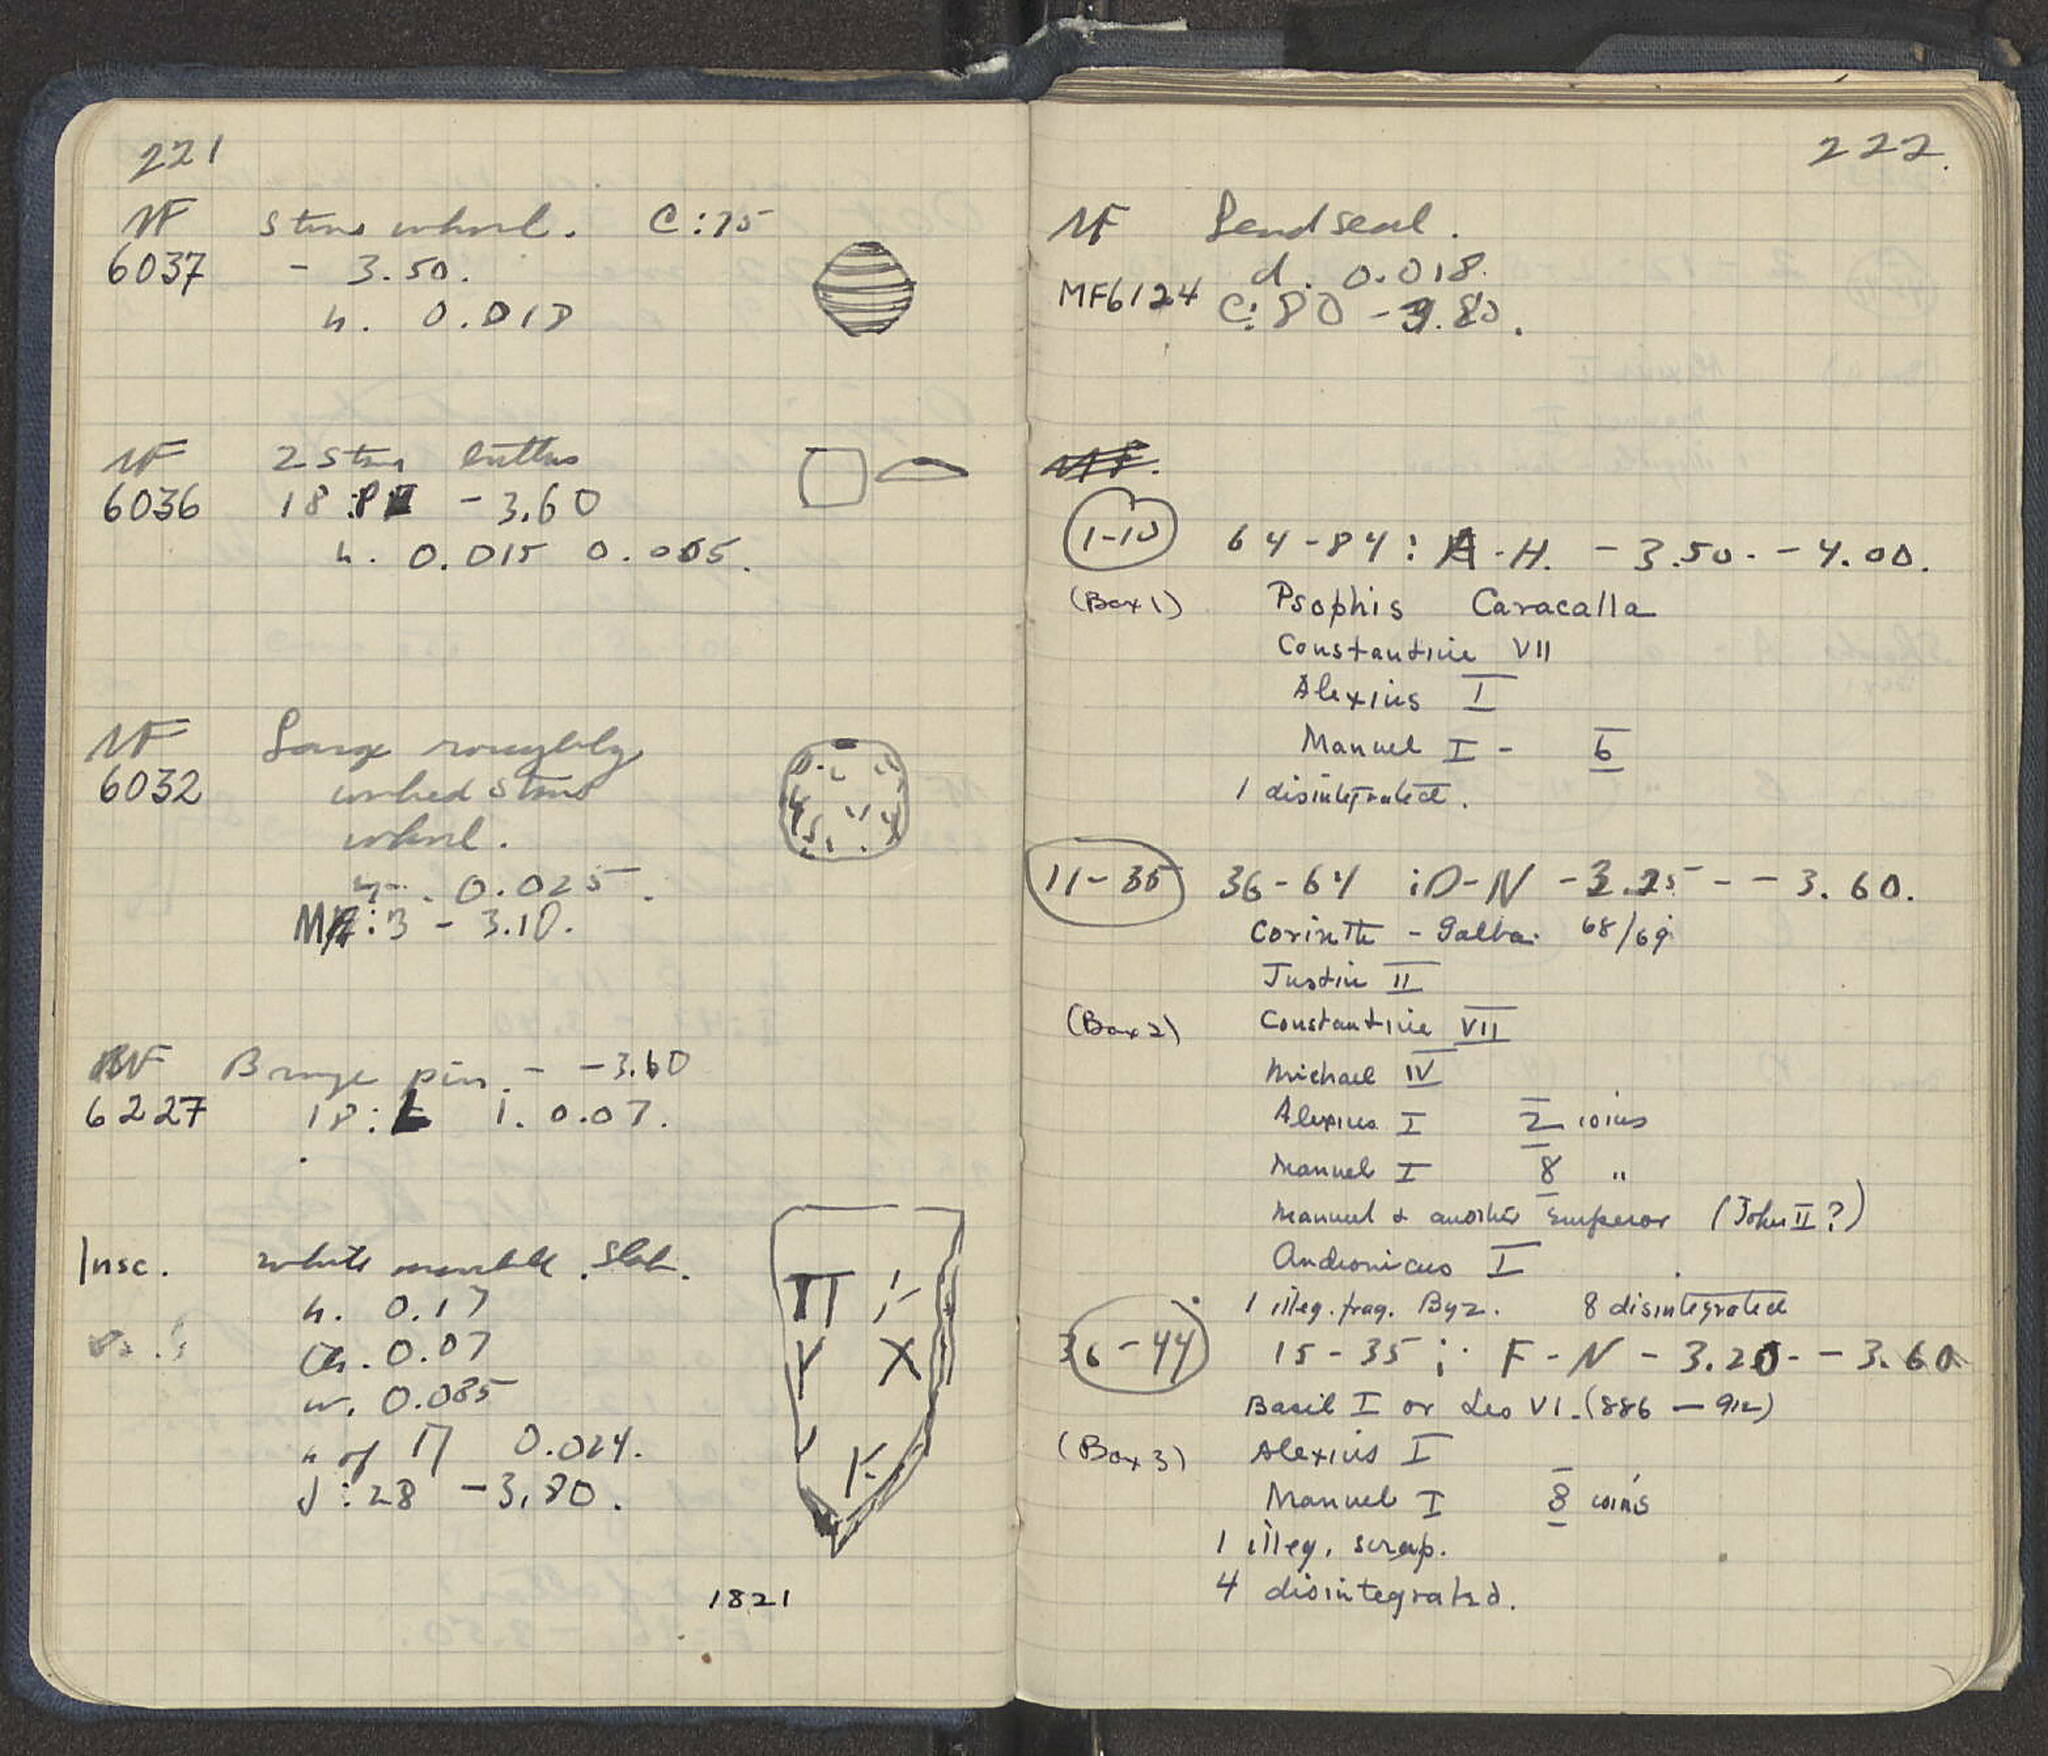 221
MF Stone whorl. C:75
6037 - 3.50.
h. 0.018
MF 2 Stone buttons
6036 18: - 3.60
h. 0.015 0.005.
MF Large roughly
6032 worked stone
whorl.
0.025.
:3 - 3.10.
MF Bronze pin. - -3.60
6227 18:L l. 0.07.
Insc. white marble slab.
h. 0.17
th. 0.07
w. 0.085
h of Π 0.024.
J:28 - 3.80.
Π Ε
Υ Χ
Ε
1821
222.
MF Lead seal.
d. 0.018.
MF6124 C:80 - 3.80.
MF.
1-10 64-84: A-H. - 3.50. - 4.00.
(Box 1) Psophis Caracalla
Constantine VII
Alexius I
Manuel I - 6
1 disintegrated.
11-35 36-64 :D-N - 3.25 - - 3.60.
Corinth - Galba. 68/69
Justin II
(Box 2) Constantine VII
Michael IV
Alexius I 2 coins
Manuel I 8 "
Manuel & another Emperor (John II?)
Andronicus I
1 illeg. frag. Byz. 8 disintegrated
36-44 15-35: F-N - 3.20 - - 3.60
Basil I or Leo VI. (886 - 912)
(Box 3) Alexius I
Manuel I 8 coins
1 illeg. scrap.
4 disintegrated.